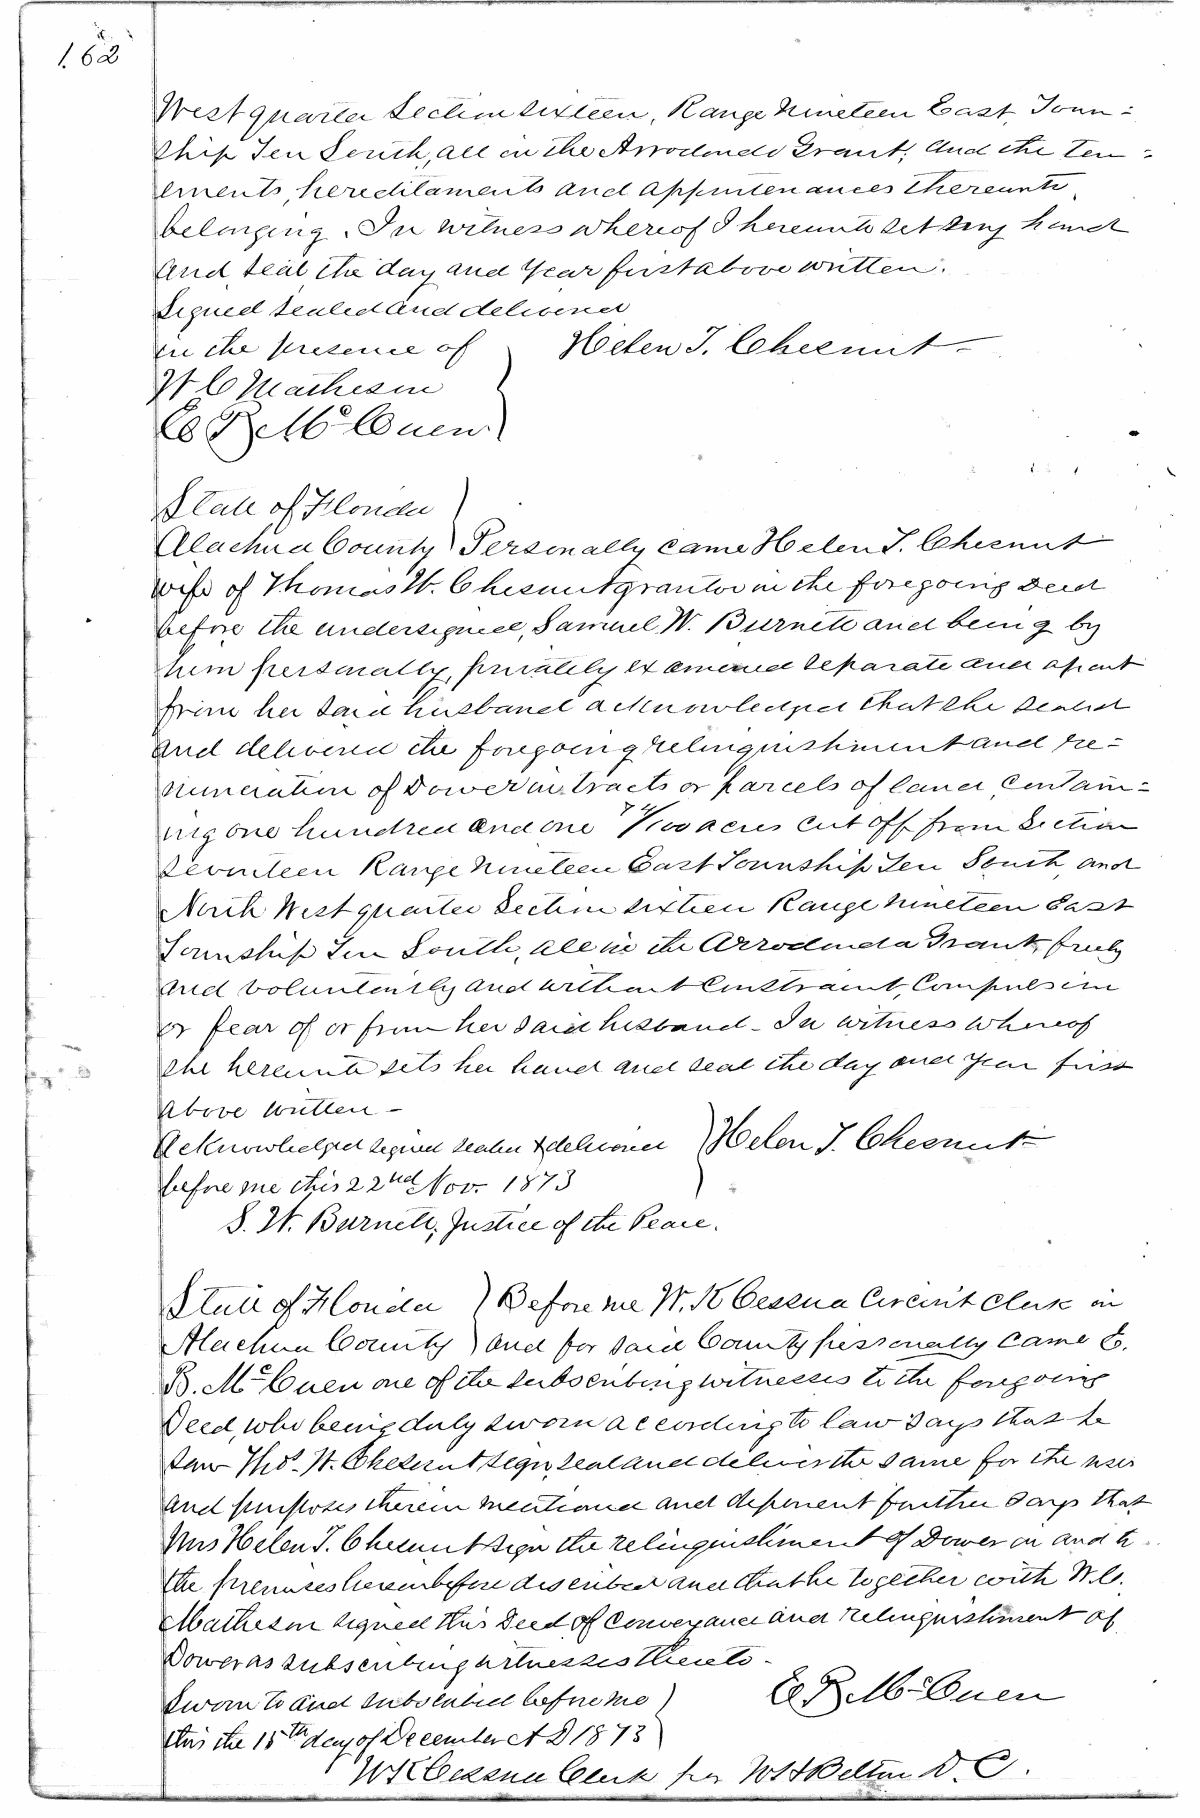 162
West quarter Section sixteen, Range Nineteen East, Town=
ship Ten South, all in the Arrodondo Grant; and the ten=
ements, hereditaments and appurtenances thereunto
belonging. In witness whereof I hereunto set my hand
and seal the day and year first above written.
Signed sealed and delivered
in the presence of Helen T. Chesnut
W C Matheson
E B McCuen
State of Florida
Alachua County Personally came Helen T. Chesnut
wife of Thomas W. Chesnut grantor in the foregoing Deed
before the undersigned, Samuel W. Burnett and being by
him personally, privately examined separate and apart
from her said husband acknowledged that she sealed
and delivered the foregoing relinquishment and re=
nunciation of Dower in tracts or parcels of land, contain=
ing one hundred and one /100 acres cut off from Section
Seventeen Range Nineteen East Township Ten South, and
North West quarter Section sixteen Range nineteen East
Township Ten South, all in the Arrodonda Grant, freely
and voluntarily and without Constraint, Compulsion
or fear of or from her said husband - In witness whereof
she hereunto sets her hand and seal the day and year first
above written -
Acknowledged signed sealed & delivered Helen T. Chesnut
before me this 22nd Nov. 1873
S. W. Burnett, Justice of the Peace.
State of Florida Before me W. K Cessna Circuit Clerk in
Alachua County and for said County personally came E.
B. McCuen one of the subscribing witnesses to the foregoing
Deed, who being duly sworn according to law says that he
saw Thos. W. Chesnut sign, seal and deliver the same for the uses
and purposes therein mentioned and deponent further says that
Mrs Helen T. Chesnut sign the relinquishment of Dower in and to
the premises hereinbefore described and that he together with W. C.
Matheson signed this Deed of Conveyance and relinquishment of
Dower as subscribing witnesses thereto -
Sworn to and subscribed before me E B McCuen
this the 15th day of December A D 1873
W K Cessna Clerk per W H Belton D. C.